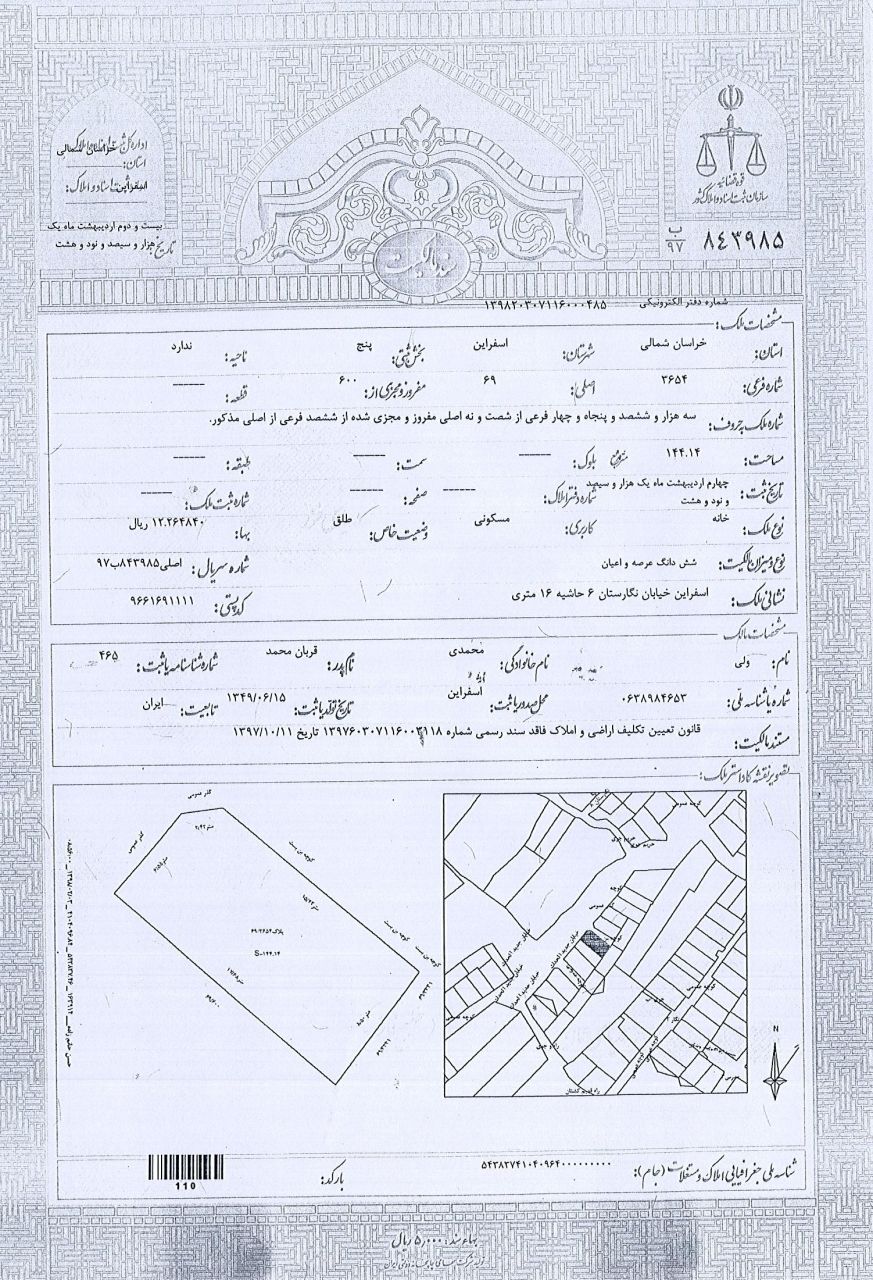 قوه قضائیه
سازمان ثبت اسناد و املاک کشور
ب
۹۷
۸۴۳۹۸۵
سند مالکیت
اداره کل
خراسان شمالی
استان:
اسناد و املاک: اسفراین
بیست و دوم اردیبهشت ماه یک
تاریخ هزار و سیصد و نود و هشت
شماره دفتر الکترونیکی ۱۳۹۸۲۰۳۰۷۱۱۶۰۰۰۴۸۵
مشخصات ملک:
استان: خراسان شمالی شهرستان: اسفراین بخش ثبتی: پنج ناحیه: ندارد
شماره فرعی: ۳۶۵۴ اصلی: ۶۹ مفروز و مجزی از: ۶۰۰ قطعه: ------
شماره ملک به حروف: سه هزار و ششصد و پنجاه و چهار فرعی از شصت و نه اصلی مفروز و مجزی شده از ششصد فرعی از اصلی مذکور.
مساحت: ۱۴۴.۱۴ مترمربع بلوک: ------ سمت: ------ طبقه: ------
تاریخ ثبت: چهارم اردیبهشت ماه یک هزار و سیصد و نود و هشت شماره دفتر املاک: ------ صفحه: ------ شماره ثبت ملک: ------
نوع ملک: خانه کاربری: مسکونی وضعیت خاص: طلق بها: ۱۲.۲۶۴۸۴۰ ریال
نوع و میزان مالکیت: شش دانگ عرصه و اعیان شماره سریال: اصلی۸۴۳۹۸۵ب۹۷
نشانی ملک: اسفراین خیابان نگارستان ۶ حاشیه ۱۶ متری کد پستی: ۹۶۶۱۶۹۱۱۱۱
مشخصات مالک
نام: ولی نام خانوادگی: محمدی نام پدر: قربان محمد شماره شناسنامه یا ثبت: ۴۶۵
شماره یا شناسه ملی: ۰۶۳۸۹۸۴۶۵۳ محل صدور یا ثبت: اسفراین تاریخ تولد یا ثبت: ۱۳۴۹/۰۶/۱۵ تابعیت: ایران
مستند مالکیت: قانون تعیین تکلیف اراضی و املاک فاقد سند رسمی شماره ۱۳۹۷۶۰۳۰۷۱۱۶۰۰۳۱۱۸ تاریخ ۱۳۹۷/۱۰/۱۱
تصویر نقشه کاداستر ملک:
گذر عمومی
گذر عمومی
کوچه بن بست
کوچه بن بست
کوچه بن بست
پلاک ۶۹/۳۶۵۴
S=۱۴۴.۱۴
۶۹/۶۰۰
N
شناسه ملی جغرافیایی املاک و مستغلات (جام): ۵۴۳۸۲۷۴۱۰۴۰۹۶۴۰۰۰۰۰۰۰۰۰
بارکد:
110
بهاء سند: ۵,۰۰۰ ریال